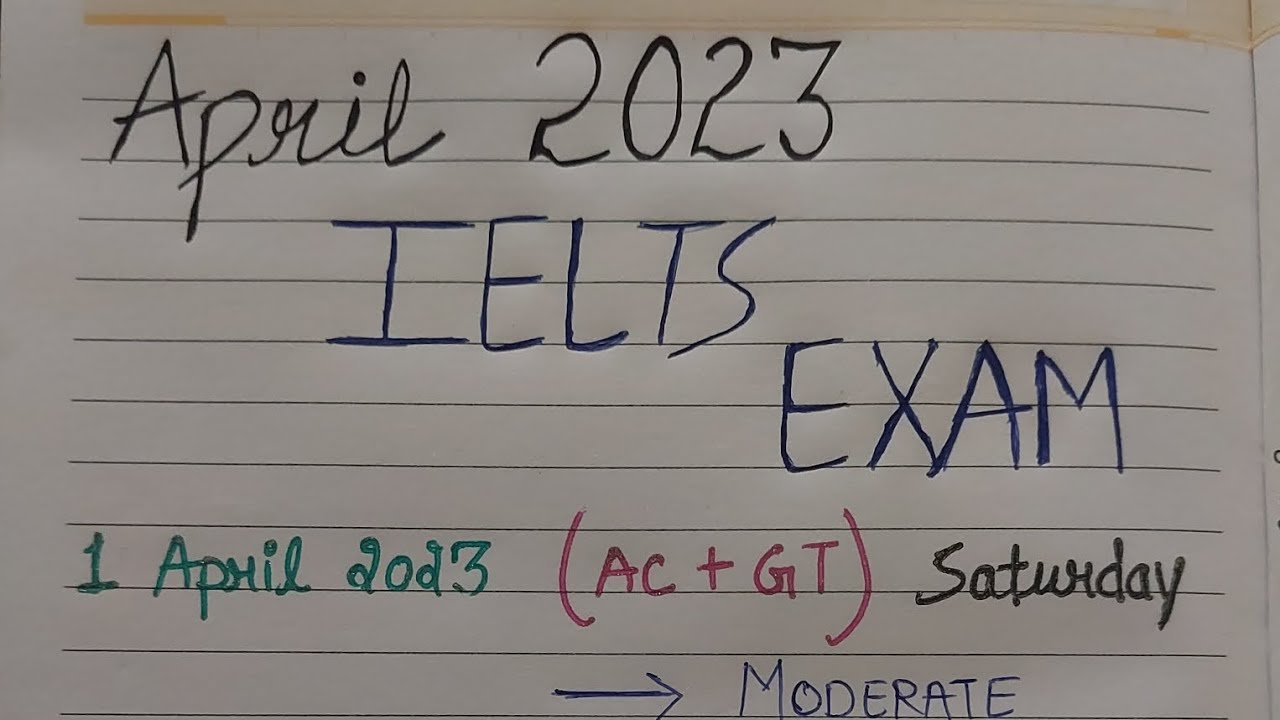 April 2023
IELTS
EXAM
1 April 2023 (AC + GT) Saturday
→ MODERATE